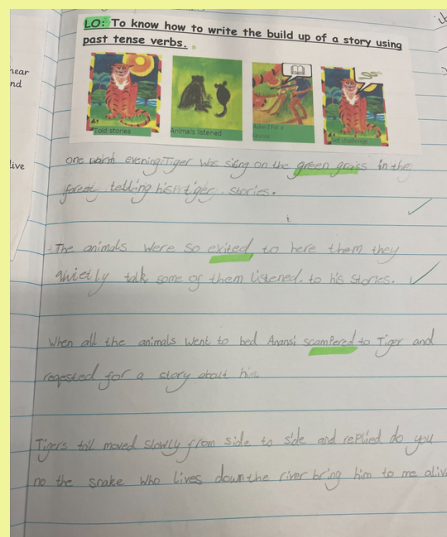 LO: To know how to write the build up of a story using
past tense verbs.
Told stories
Animals listened
ear
nd
live
one warm evening Tiger was siting on the green grass in the
forest telling his tiger stories.
The animals were so exited to here them they
quietly talk some of them listened to his stories.
When all the animals went to bed Anansi scampered to Tiger and
reqested for a story about him
Tigers tail moved slowly from side to side and replied do you
no the snake who lives down the river bring him to me aliv